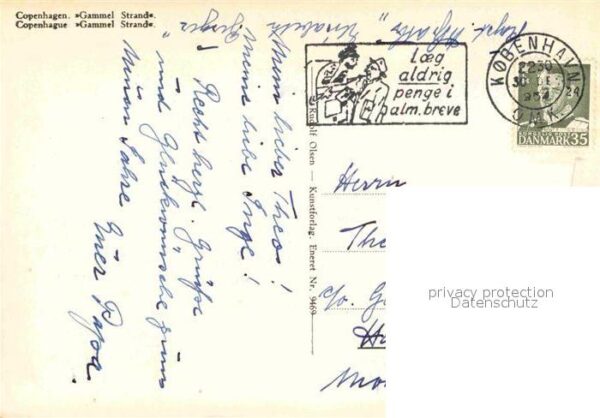 Copenhagen. »Gammel Strand«.
Copenhague »Gammel Strand«.
Læg
aldrig
penge i
alm. breve
KØBENHAVN
OMK.
24
DANMARK 35
Rudolf Olsen — Kunstforlag. Eneret Nr. 9469
Mein lieber Theo!
Meine liebe Inge!
Recht herzl. Grüsse
und Glückwünsche zum
Neuen Jahre Euer Papa.
Herrn
The
c/o G
privacy protection
Datenschutz